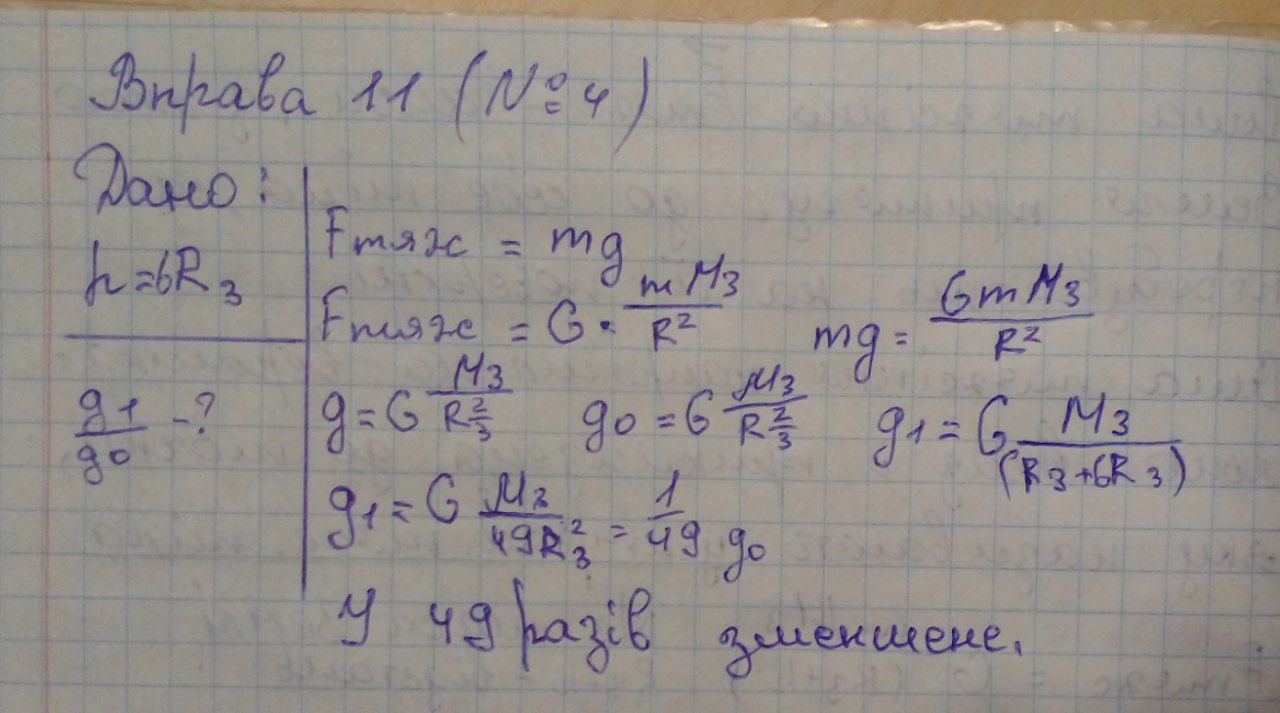 Вправа 11 (№ 4)
Дано:
h=6R₃
g₁/g₀ -?
Fтяж = mg
Fтяж = G · mM₃/R²   mg = GmM₃/R²
g = G M₃/R₃²   g₀ = G M₃/R₃²   g₁ = G M₃/(R₃+6R₃)
g₁ = G M₃/49R₃² = 1/49 g₀
У 49 разів зменшене.